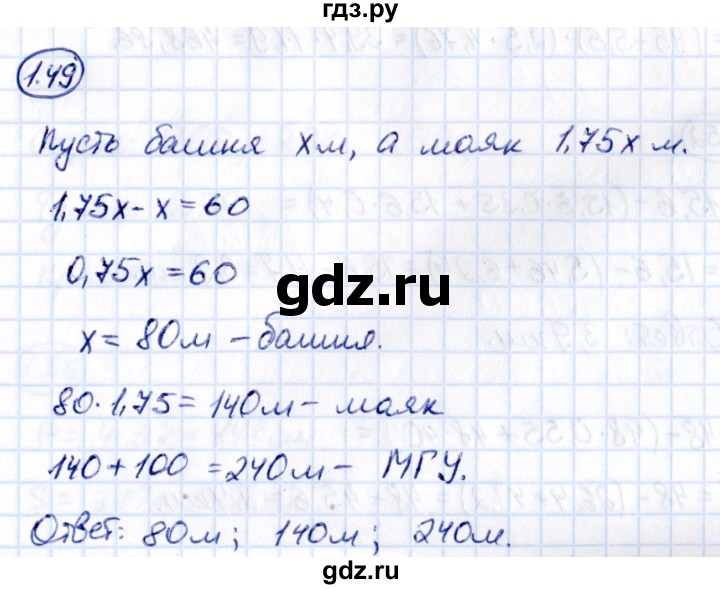 гдз.ру
1.49
Пусть башня x м, а маяк 1,75x м.
1,75x - x = 60
0,75x = 60
gdz.ru
x = 80м - башня.
80·1,75 = 140м - маяк
140 + 100 = 240м - МГУ.
Ответ: 80м; 140м; 240м.
gdz.ru